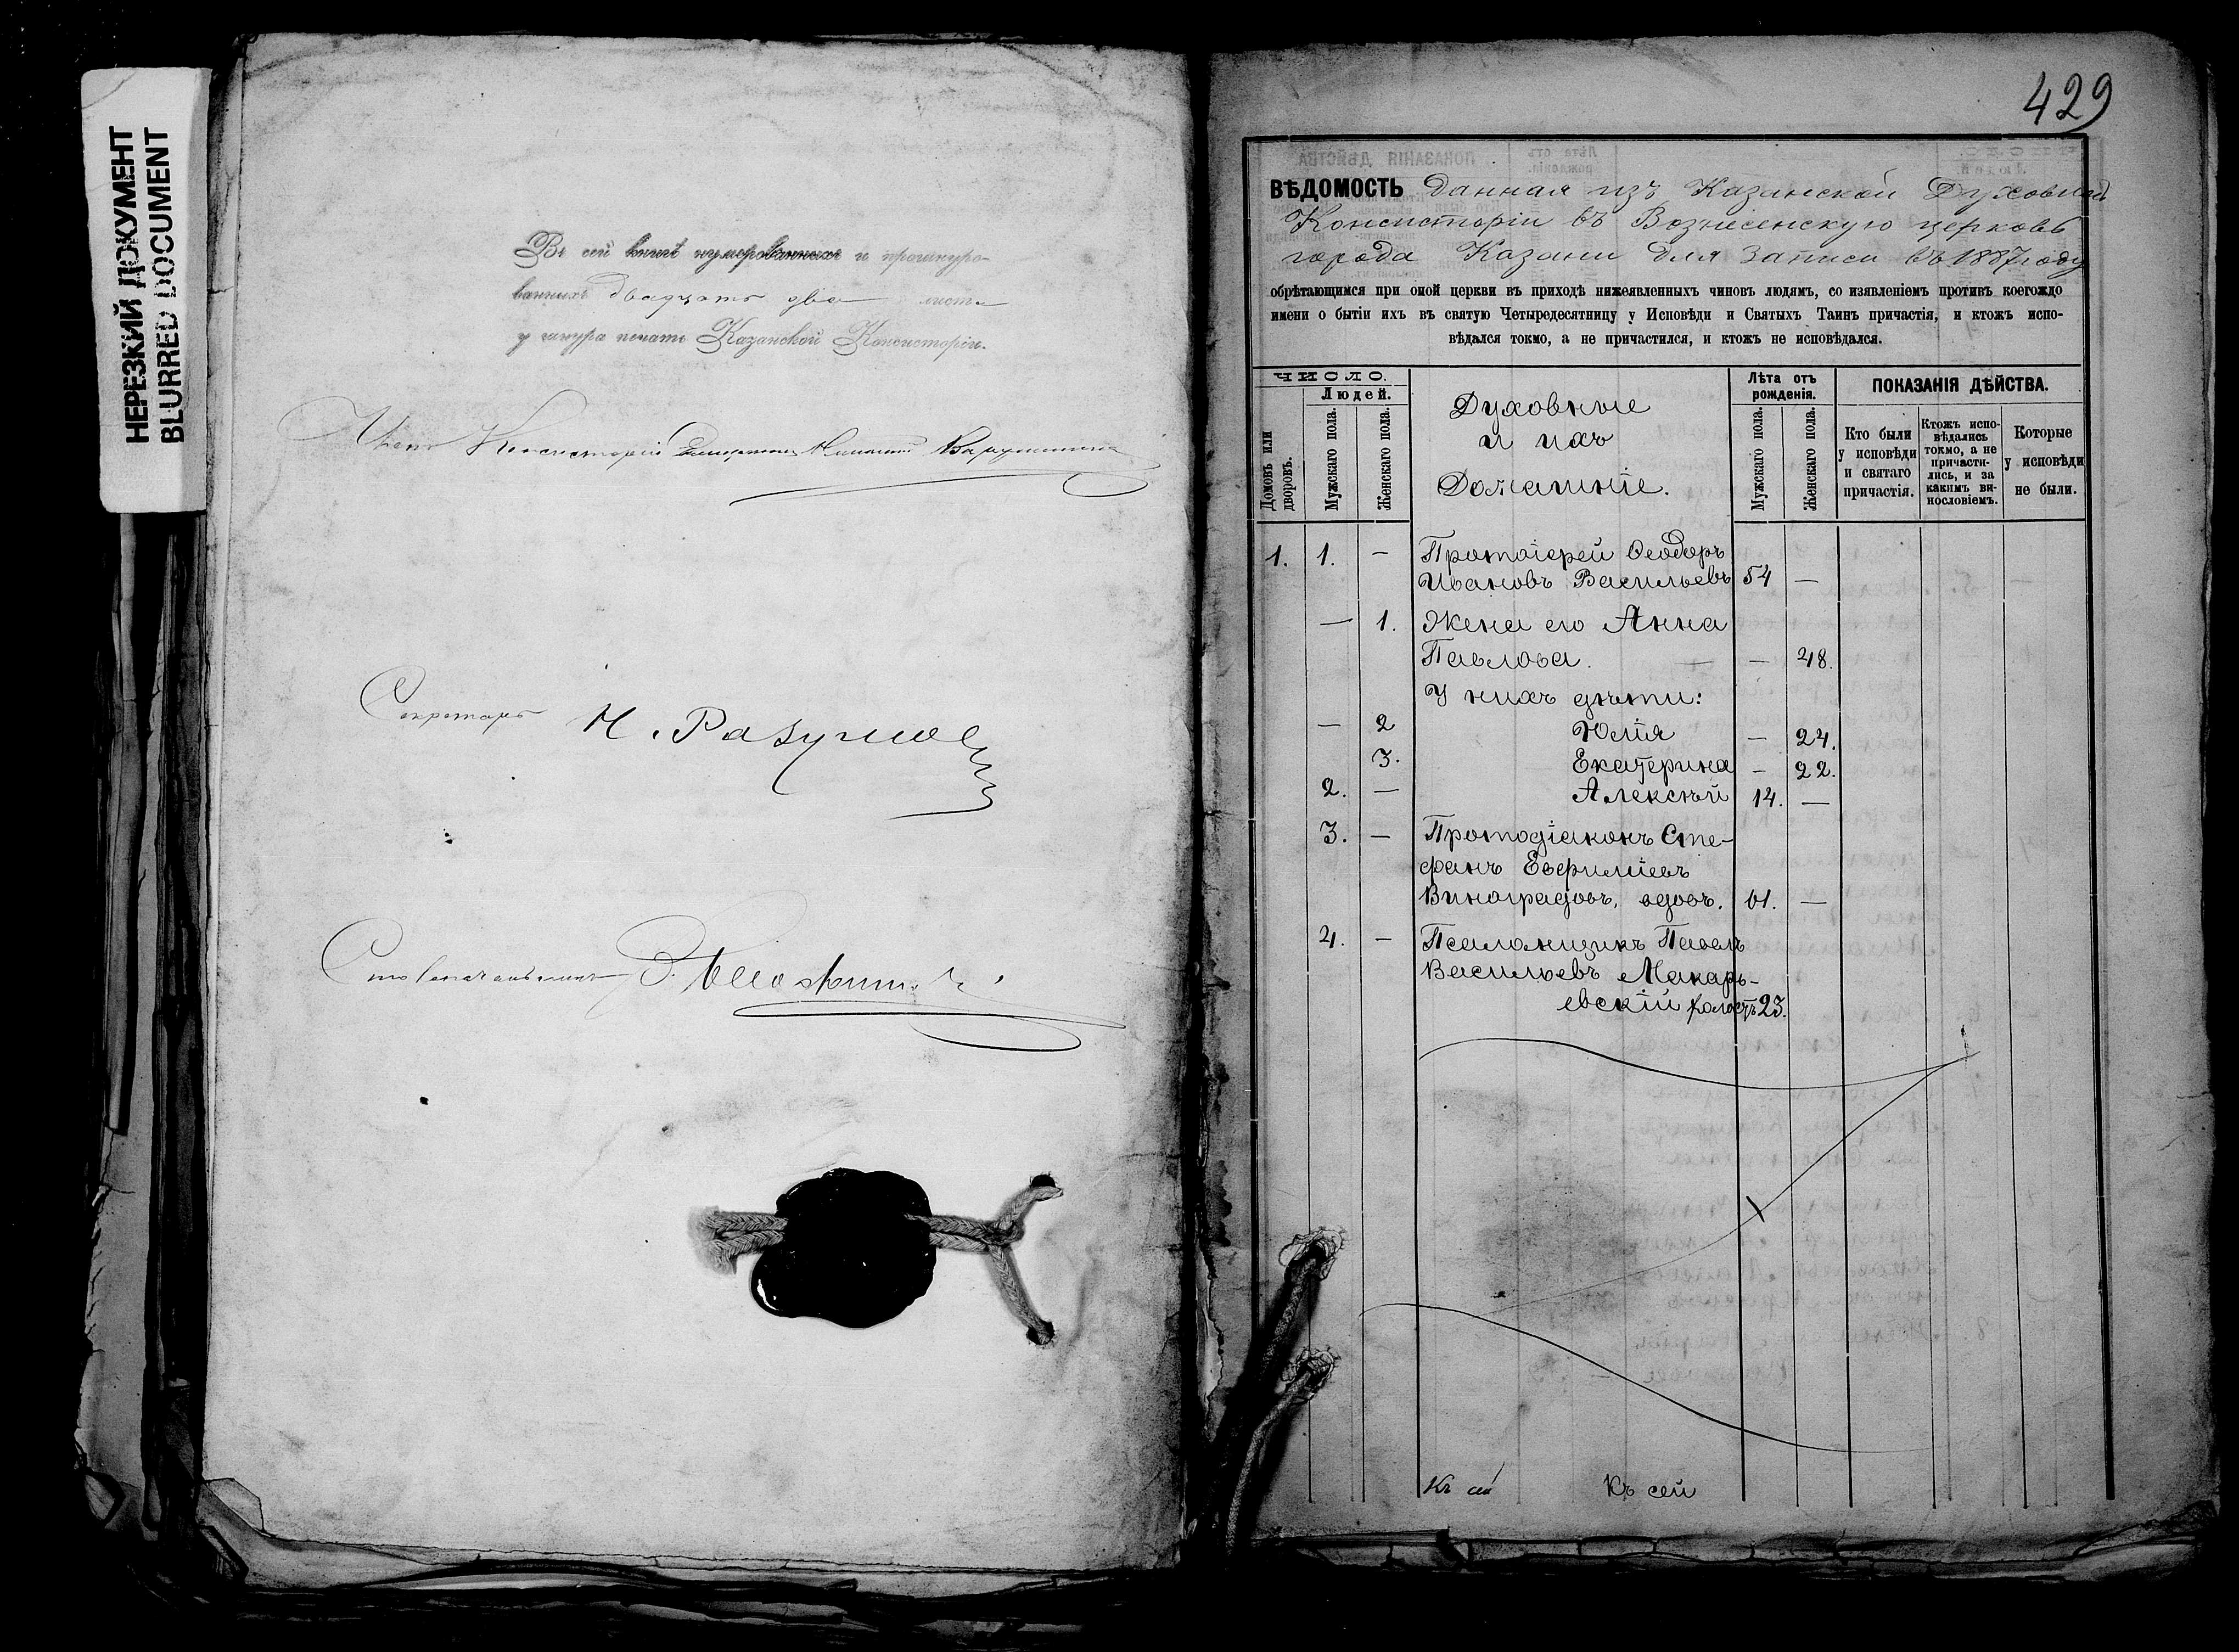 НЕРЕЗКИЙ ДОКУМЕНТ
BLURRED DOCUMENT
Въ сей книгѣ нумерованныхъ и прошнуро-
ванныхъ двадцать два листа
у шнура печать Казанской Консисторіи.
Членъ Консисторіи
Секретарь Н. Разумов
Столоначальникъ
429
ВѢДОМОСТЬ данная изъ Казанской Духовной
Консисторіи въ Вознесенскую церковь
города Казани для записи въ 1887 году
обрѣтающимся при оной церкви въ приходѣ нижеявленныхъ чиновъ людямъ, со изявленіемъ противъ коегождо
имени о бытіи ихъ въ святую Четыредесятницу у Исповѣди и Святыхъ Таинъ причастія, и ктожъ испо-
вѣдался токмо, а не причастился, и ктожъ не исповѣдался.
ЧИСЛО.
Домовъ или дворовъ.
Людей.
Мужскаго пола.
Женскаго пола.
Духовные
и ихъ
Домашніе.
Лѣта отъ
рожденія.
Мужскаго пола.
Женскаго пола.
ПОКАЗАНІЯ ДѢЙСТВА.
Кто были
у исповѣди
и святаго
причастія.
Ктожъ испо-
вѣдались
токмо, а не
причасти-
лись, и за
какимъ ви-
нословіемъ.
Которые
у исповѣди
не были.
1. 1. — Протоіерей Ѳеодоръ
Ивановъ Васильевъ 54 —
— 1. Жена его Анна
Павлова. — — 48.
У нихъ дѣти:
— 2 Юлія — 24.
3. Екатерина — 22.
2. — Алексѣй 14. —
3. — Протодіаконъ Сте-
фанъ Евфиміевъ
Виноградовъ, вдовъ. 61. —
4. — Псаломщикъ Павелъ
Васильевъ Макарь-
евскій холостъ 23.
Къ сей Къ сей